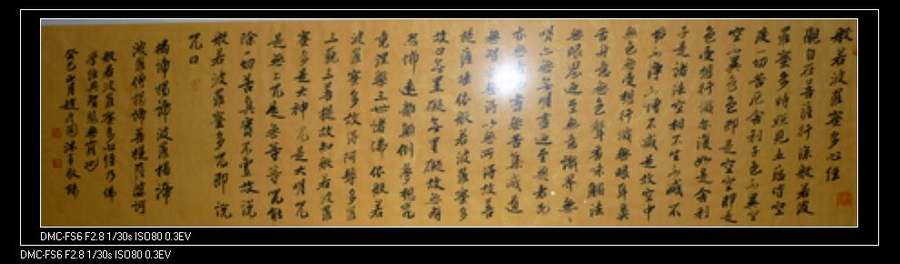 般若波羅蜜多心經
觀自在菩薩行深般若波
羅蜜多時照見五蘊皆空
度一切苦厄舍利子色不異空
空不異色色即是空空即是
色受想行識亦復如是舍利
子是諸法空相不生不滅不
垢不淨不增不減是故空中
無色無受想行識無眼耳鼻
舌身意無色聲香味觸法
無眼界乃至無意識界無無
明亦無無明盡乃至無老死
亦無盡無苦集滅道
無智亦無得以無所得故菩
提薩埵依般若波羅蜜多
故心無罣礙無罣礙故無有
恐怖遠離顛倒夢想究
竟涅槃三世諸佛依般若
波羅蜜多故得阿耨多羅
三藐三菩提故知般若波羅
蜜多是大神咒是大明咒
是無上咒是無等等咒能
除一切苦真實不虛故說
般若波羅蜜多咒即說
咒曰
揭諦揭諦波羅揭諦
波羅僧揭諦菩提薩婆訶
般若波羅蜜多心經乃佛
學經典智慧無窮也
癸巳月趙國沐手敬
DMC-FS6 F2.8 1/30s ISO80 0.3EV
DMC-FS6 F2.8 1/30s ISO80 0.3EV